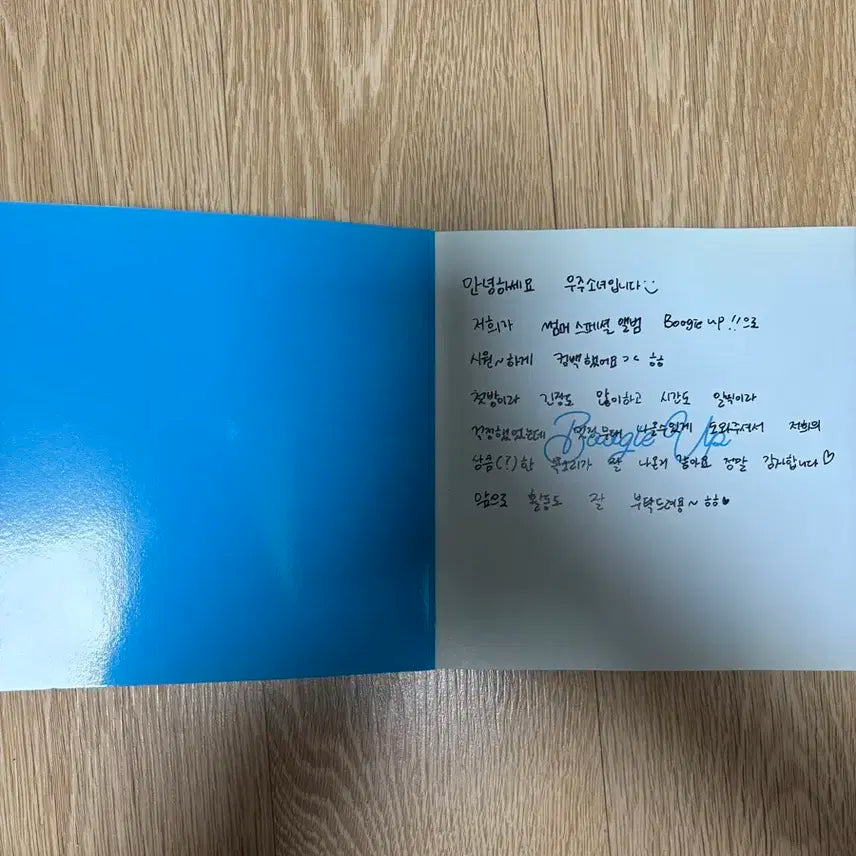 안녕하세요 우주소녀입니다 :)
저희가 썸머 스페셜 앨범 Boogie up!!으로
시원~하게 컴백했어요 >< ㅎㅎ
첫방이라 긴장도 많이하고 시간도 일찍이라
걱정했었는데 멋진 무대 나올수있게 도와주셔서 저희의
Boogie Up
상큼(?)한 목소리가 잘 나온거 같아요 정말 감사합니다♡
앞으로 활동도 잘 부탁드려용~ ㅎㅎ♥